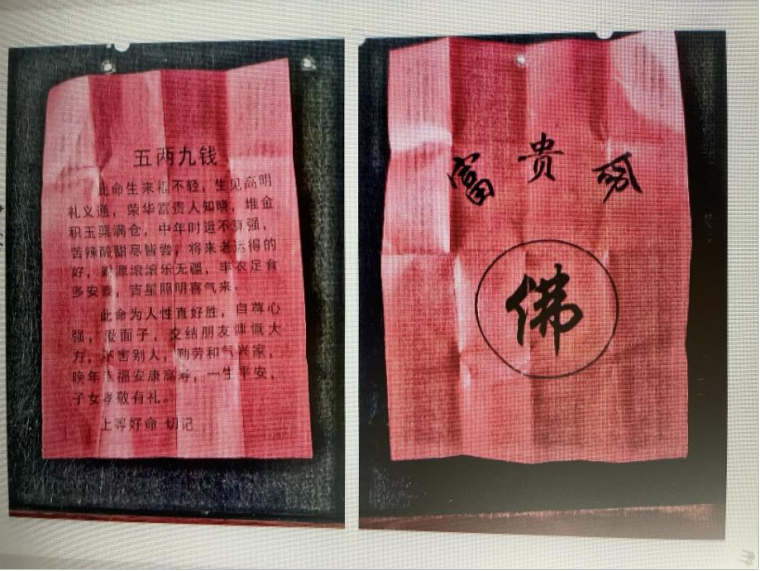 五两九钱
此命生来福不轻，生见高明
礼义通，荣华富贵人知晓，堆金
积玉粟满仓，中年时运不算强，
苦辣酸甜尽皆尝，将来老运得的
好，财源滚滚乐无疆，丰衣足食
多安泰，吉星照明喜气来。
此命为人性直好胜，自尊心
强，爱面子，交结朋友慷慨大
方，不害别人，勤劳和气兴家，
晚年幸福安康高寿，一生平安，
子女孝敬有礼。
上等好命 切记
富贵
佛